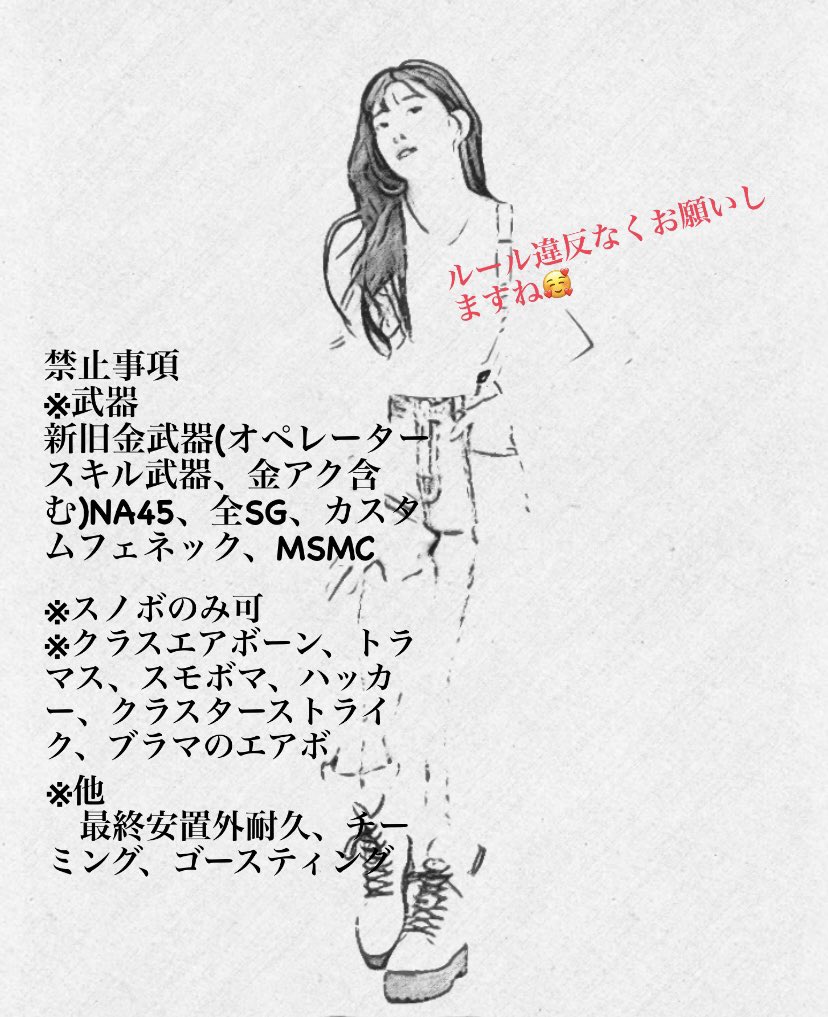 ルール違反なくお願いし
ますね🥰
禁止事項
※武器
新旧金武器(オペレーター
スキル武器、金アク含
む)NA45、全SG、カスタ
ムフェネック、MSMC
※スノボのみ可
※クラスエアボーン、トラ
マス、スモボマ、ハッカ
ー、クラスターストライ
ク、ブラマのエアボ
※他
　最終安置外耐久、チー
ミング、ゴースティング